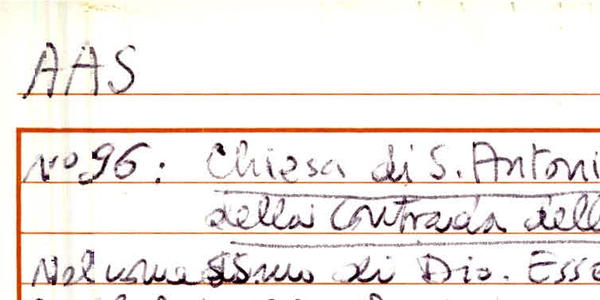 AAS
N° 96: Chiesa di S. Antoni
della Contrada dell
Nel nome di Dio. Esse